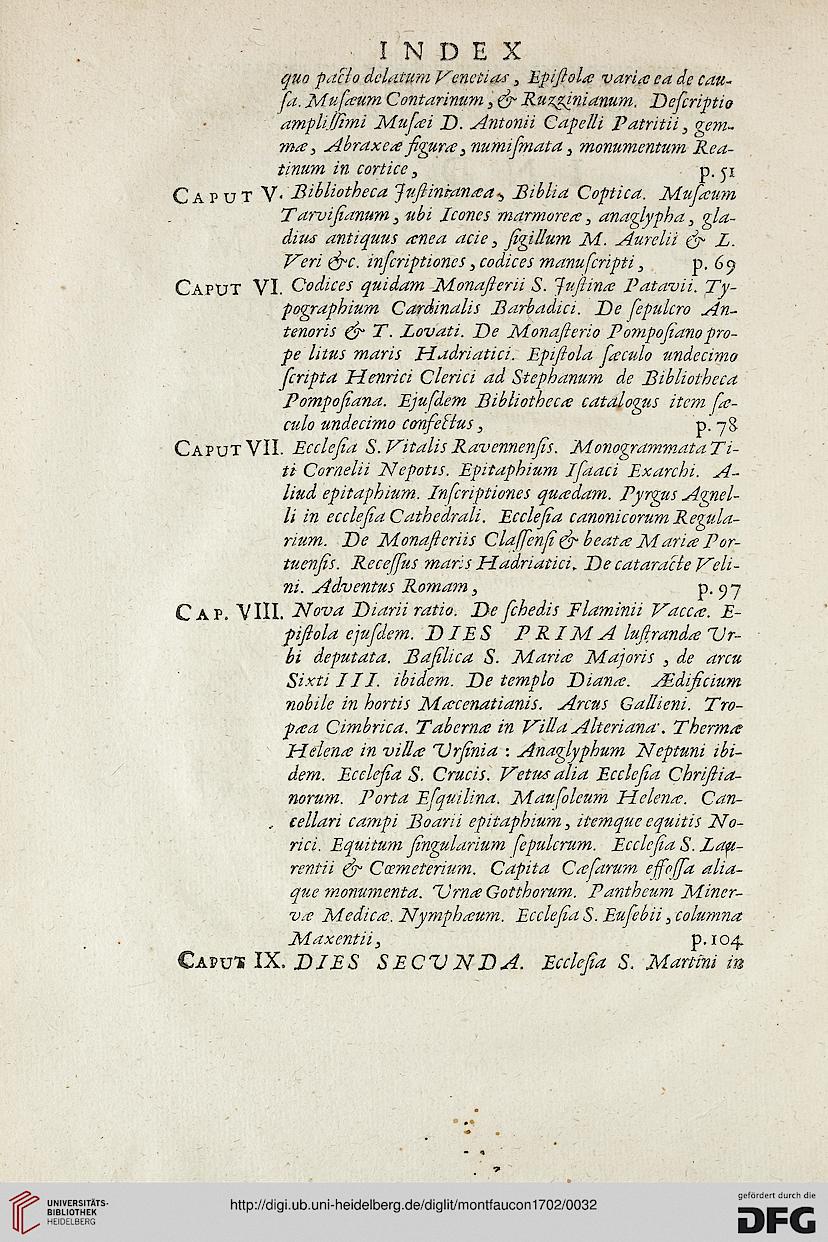 INDEX
quo pacto delatum Venetias, Epiſtolæ variæ ea de cau-
ſa. Muſæum Contarinum, & Ruzzinianum. Deſcriptio
ampliſſimi Muſæi D. Antonii Capelli Patritii, gem-
mæ, Abraxeæ figuræ, numiſmata, monumentum Rea-
tinum in cortice, p. 51
CAPUT V. Bibliotheca Juſtinianæa, Biblia Coptica. Muſæum
Tarviſianum, ubi Icones marmoreæ, anaglypha, gla-
dius antiquus ænea acie, ſigillum M. Aurelii & L.
Veri &c. inſcriptiones, codices manuſcripti, p. 69
CAPUT VI. Codices quidam Monaſterii S. Juſtinæ Patavii. Ty-
pographium Cardinalis Barbadici. De ſepulcro An-
tenoris & T. Lovati. De Monaſterio Pompoſiano pro-
pe litus maris Hadriatici. Epiſtola ſæculo undecimo
ſcripta Henrici Clerici ad Stephanum de Bibliotheca
Pompoſiana. Ejuſdem Bibliothecæ catalogus item ſæ-
culo undecimo confectus, p. 78
CAPUT VII. Eccleſia S. Vitalis Ravennenſis. Monogrammata Ti-
ti Cornelii Nepotis. Epitaphium Iſaaci Exarchi. A-
liud epitaphium. Inſcriptiones quædam. Pyrgus Agnel-
li in eccleſia Cathedrali. Eccleſia canonicorum Regula-
rium. De Monaſteriis Claſſenſi & beatæ Mariæ Por-
tuenſis. Receſſus maris Hadriatici. De cataracte Veli-
ni. Adventus Romam, p. 97
CAP. VIII. Nova Diarii ratio. De ſchedis Flaminii Vaccæ. E-
piſtola ejuſdem. DIES PRIMA luſtrandæ Ur-
bi deputata. Baſilica S. Mariæ Majoris, de arcu
Sixti III. ibidem. De templo Dianæ. Ædificium
nobile in hortis Mæcenatianis. Arcus Gallieni. Tro-
pæa Cimbrica. Tabernæ in Villa Alteriana. Thermæ
Helenæ in villæ Urſinia: Anaglyphum Neptuni ibi-
dem. Eccleſia S. Crucis. Vetus alia Eccleſia Chriſtia-
norum. Porta Eſquilina. Mauſoleum Helenæ. Can-
cellari campi Boarii epitaphium, itemque equitis No-
rici. Equitum ſingularium ſepulcrum. Eccleſia S. Lau-
rentii & Cœmeterium. Capita Cæſarum effoſſa alia-
que monumenta. Urnæ Gotthorum. Pantheum Miner-
væ Medicæ. Nymphæum. Eccleſia S. Euſebii, columna
Maxentii, p. 104
CAPUT IX. DIES SECUNDA. Eccleſia S. Martini in
UNIVERSITÄTS-
BIBLIOTHEK
HEIDELBERG
http://digi.ub.uni-heidelberg.de/diglit/montfaucon1702/0032
gefördert durch die
DFG